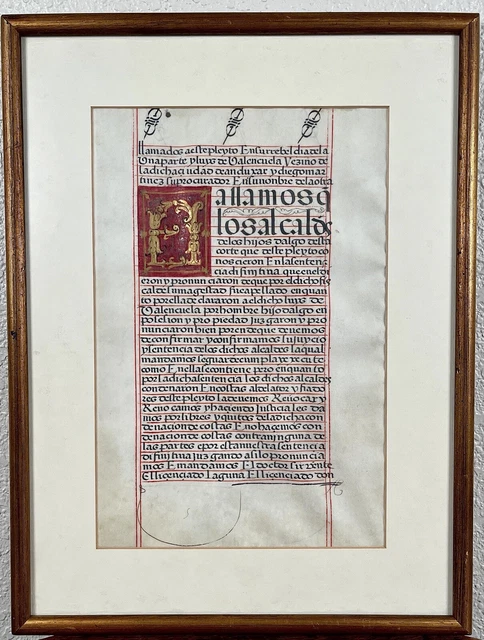 llamados aeste pleyto Ensurrebeldia dela
Vnaparte yluys de Valençuela Vezino de
ladicha ciudad de anduxar y diego mar
tinez su procurador Ensunonbre delaotra
Fallamos q̃
los alcaldes
delos hijos dalgo desta
corte que deste pleyto co
noscieron Enlasenten
cia difinitiua queenel di
eron y pronunciaron deque por eldicho fis
cal desumagestad fue apellado enquan
to porella declararon aeldicho luys de
Valençuela por hombre hijo dalgo en
posesion y propiedad Juzgaron y pro
nunciaron bien por ende que deuemos
de confirmar y confirmamos su juycio
y sentencia delos dichos alcaldes laqual
mandamos leguar de cumpla y execute
como Enella se contiene pero enquanto
por ladicha sentencia los dichos alcaldes
condenaron En costas aldelator y fiado
res deste pleyto la deuemos Reuocar y
Reuocamos y haziendo Justicia les da
mos por libres y quitos dela dicha con
denacion de costas E no hazemos con
denacion de costas contra ninguna de
las partes e por esta nuestra sentencia
difinitiua juzgando asi lo pronuncia
mos E mandamos El doctor
El licenciado laguna El licenciado don